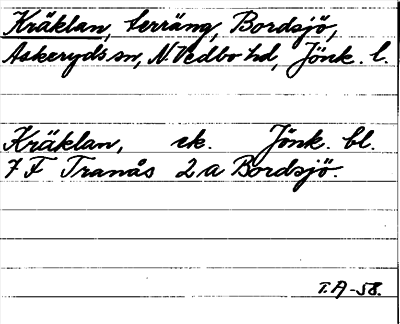 Kräklan, terräng, Bordsjö,
Askeryds sn, N. Vedbo hd, Jönk. l.
Kräklan, ek. Jönk. bl.
7 F Tranås 2 a Bordsjö.
T.A-58.